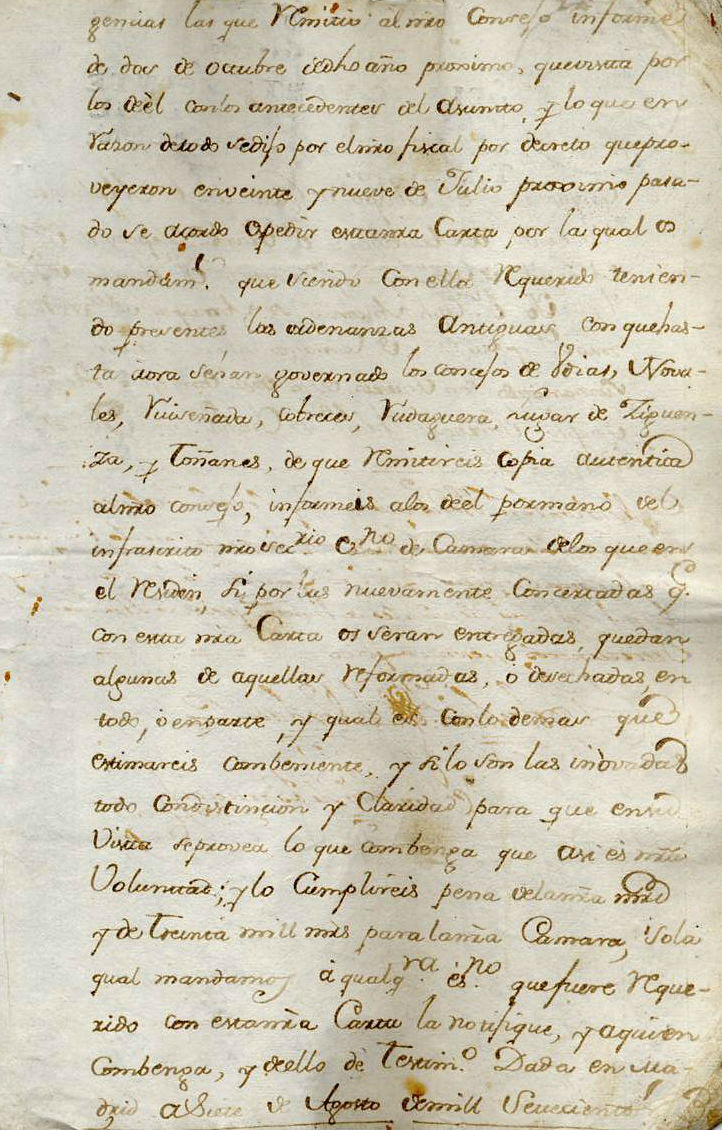 gencias las que Remitio al nro Consejo informe
de dos de Octubre dedho año proximo, que vista por
los deèl con los antecedentes del asunto, y lo que en
razon de todo sedijo por el nro fiscal por decreto que pro-
veyeron en veinte y nueve de Julio proximo pasa-
do se acordo expedir esta nra Carta por la qual os
mandam.s que siendo Con ella Requerido tenien-
do presentes las ordenanzas Antiguas con que has-
ta aora sehan governado los concejos de Udias, Nova-
les, Ruiseñada, Cobreces, Rudaguera, Lugar de Ziguen-
za, y Toñanes, de que Remitireis copia autentica
al nro consejo, informeis alos deel por mano del
infrascrito nro secrio Esno de Camara delos que en
el Residen, si por las nuevamente Concertadas q.
con esta nra Carta os seran entregadas, quedan
algunas de aquellas reformadas, ò desechadas en
todo, ò en parte, y qual es con lo demas que
estimareis combeniente, y si lo son las inovadas
todo Con distincion y Claridad para que en su
Vista se provea lo que combenga que asi es nra
Voluntad; y lo Cumplireis pena dela nra mrd
y de Treinta mill mrs para la nra Camara, sola
qual mandamos à qualqra esno que fuere Reque-
rido con esta nra Carta la notifique, y a quien
Combenga, y dello dè Testim.o Dada en Ma-
drid a Siete de Agosto de mill Setecientos